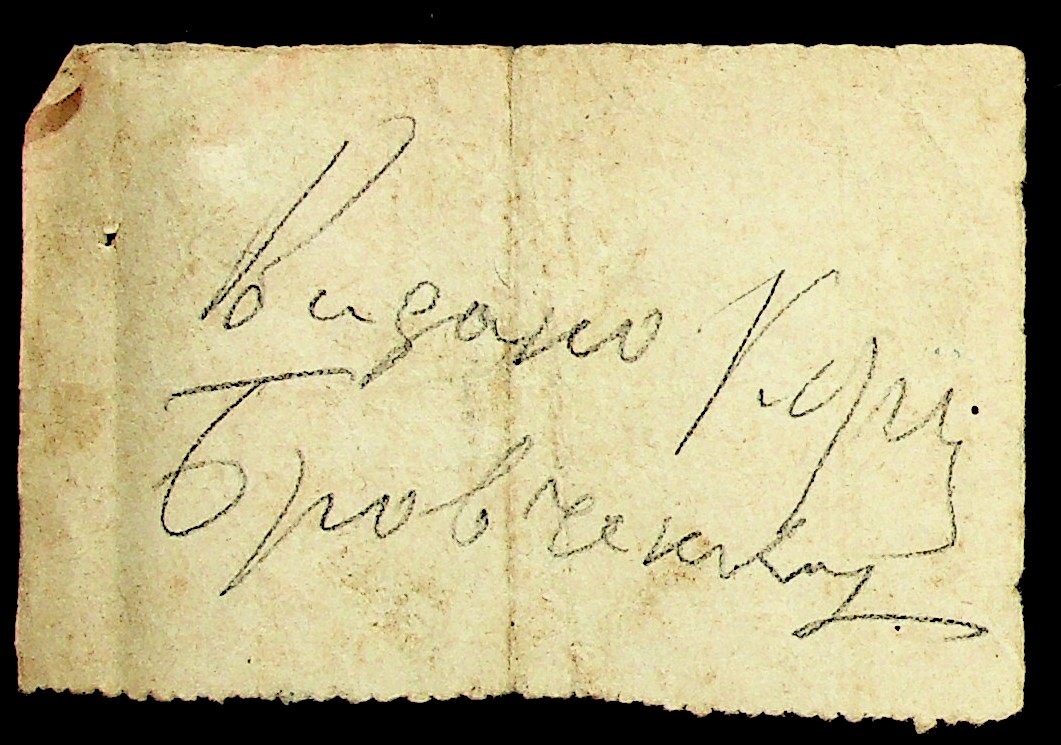 Видано Юрц
Бровченку